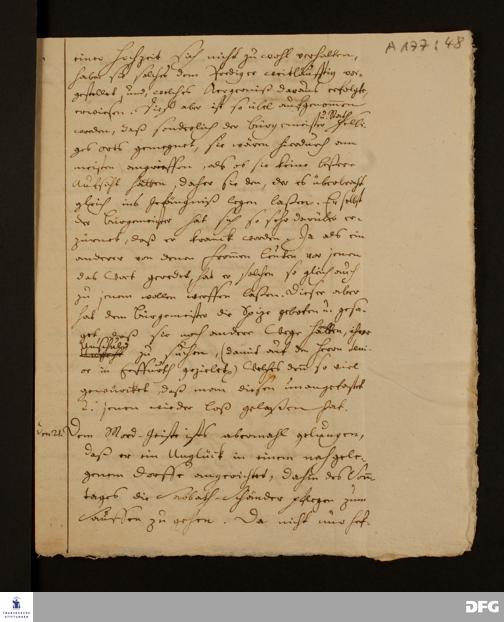 A 177 : 48
einer Hochzeit sich nicht zu wohl verhalten,
haben sie solches dem Prediger weitläufftig vor-
gestellet, und, welches Aergerniß daraus erfolgte,
erwiesen. Dieß aber ist so übel aufgenomen
worden, daß sonderlich der Bürgemeister u. Rath selbi-
ges orts gemeynet, sie wären hierdurch am
meisten angegriffen, als ob sie keine bessere
Aufsicht hätten, daher sie den, der es überbracht,
gleich ins Gefängniß legen laßen. Er selbst
der Bürgemeister hat sich so sehr darüber er-
zürnet, daß er kranck worden. Ja als ein
anderer von denen frommen leuten vor jenen
das Wort geredet, hat er solchen so gleich auch
zu jenem wollen werffen laßen. Dieser aber
hat dem Bürgemeister die Spize geboten u. gesa-
get, daß sie noch andere Wege hätten, ihre
Unschuld zu suchen, (damit auf den Herrn
in Erffurth gezielet) Welches denn so viel
gewürcket, daß man diesen unangetastet
u. jenen wieder loß gelaßen hat.
den 21. Dem Mord-Geiste ists abermahl gelungen,
daß er ein Unglück in einem nah gele-
genen Dorffe angerichtet, dahin des Son-
tages die Sabbath-Schänder pflegen zum
Sauffen zu gehen. Da nicht nur
FRANCKESCHE STIFTUNGEN
DFG